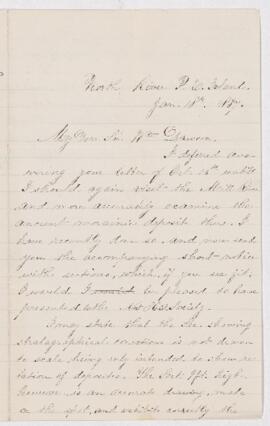 North River P. E. Island.
Jan. 18th, 1887.
My Dear Sir Wm Dawson.
I defered ans-
wering your letter of Oct. 13th until
I should again visit the Mill River
and more accurately examine the
ancient morainic deposit there. I
have recently done so and now send
you the accompanying short notice
with sections, which, if you see fit,
I would be pleased to have
presented to the Nat. Hist. Society.
I may state that the Sec. showing
stratagraphical conections is not drawn
to scale, being only intended to show re-
lation of deposits. The Sect. 9ft. high
however is an accurate drawing, made
on the spot, and exhibits correctly the